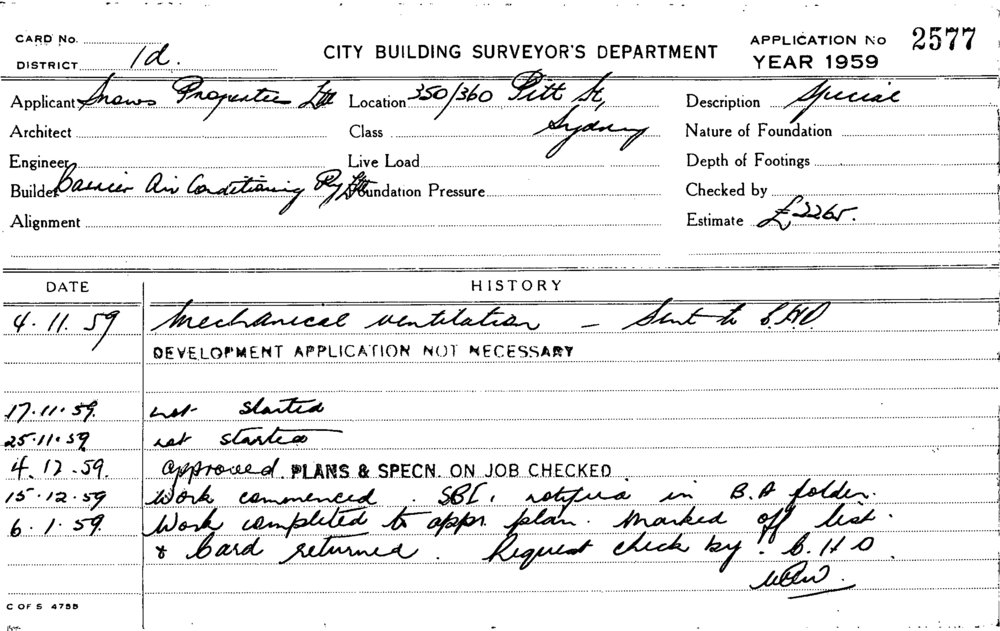 CARD No.
DISTRICT 1d.
CITY BUILDING SURVEYOR'S DEPARTMENT
APPLICATION No 2577
YEAR 1959
Applicant Snows Properties Ltd Location 350/360 Pitt St, Description Special
Architect Class Sydney Nature of Foundation
Engineer Live Load Depth of Footings
Builder Barrier Air Conditioning Pty Ltd Foundation Pressure Checked by
Alignment Estimate £2265.
DATE HISTORY
4.11.59 Mechanical ventilation - Sent to C.H.O
DEVELOPMENT APPLICATION NOT NECESSARY
17.11.59. not started
25.11.59 not started
4.12.59. approved. PLANS & SPECN. ON JOB CHECKED
15.12.59 Work commenced. SBI. notified in B.A folder.
6.1.59. Work completed to appr. plan. Marked off list.
& Card returned. Request check by C.H.O.
C OF S 475B